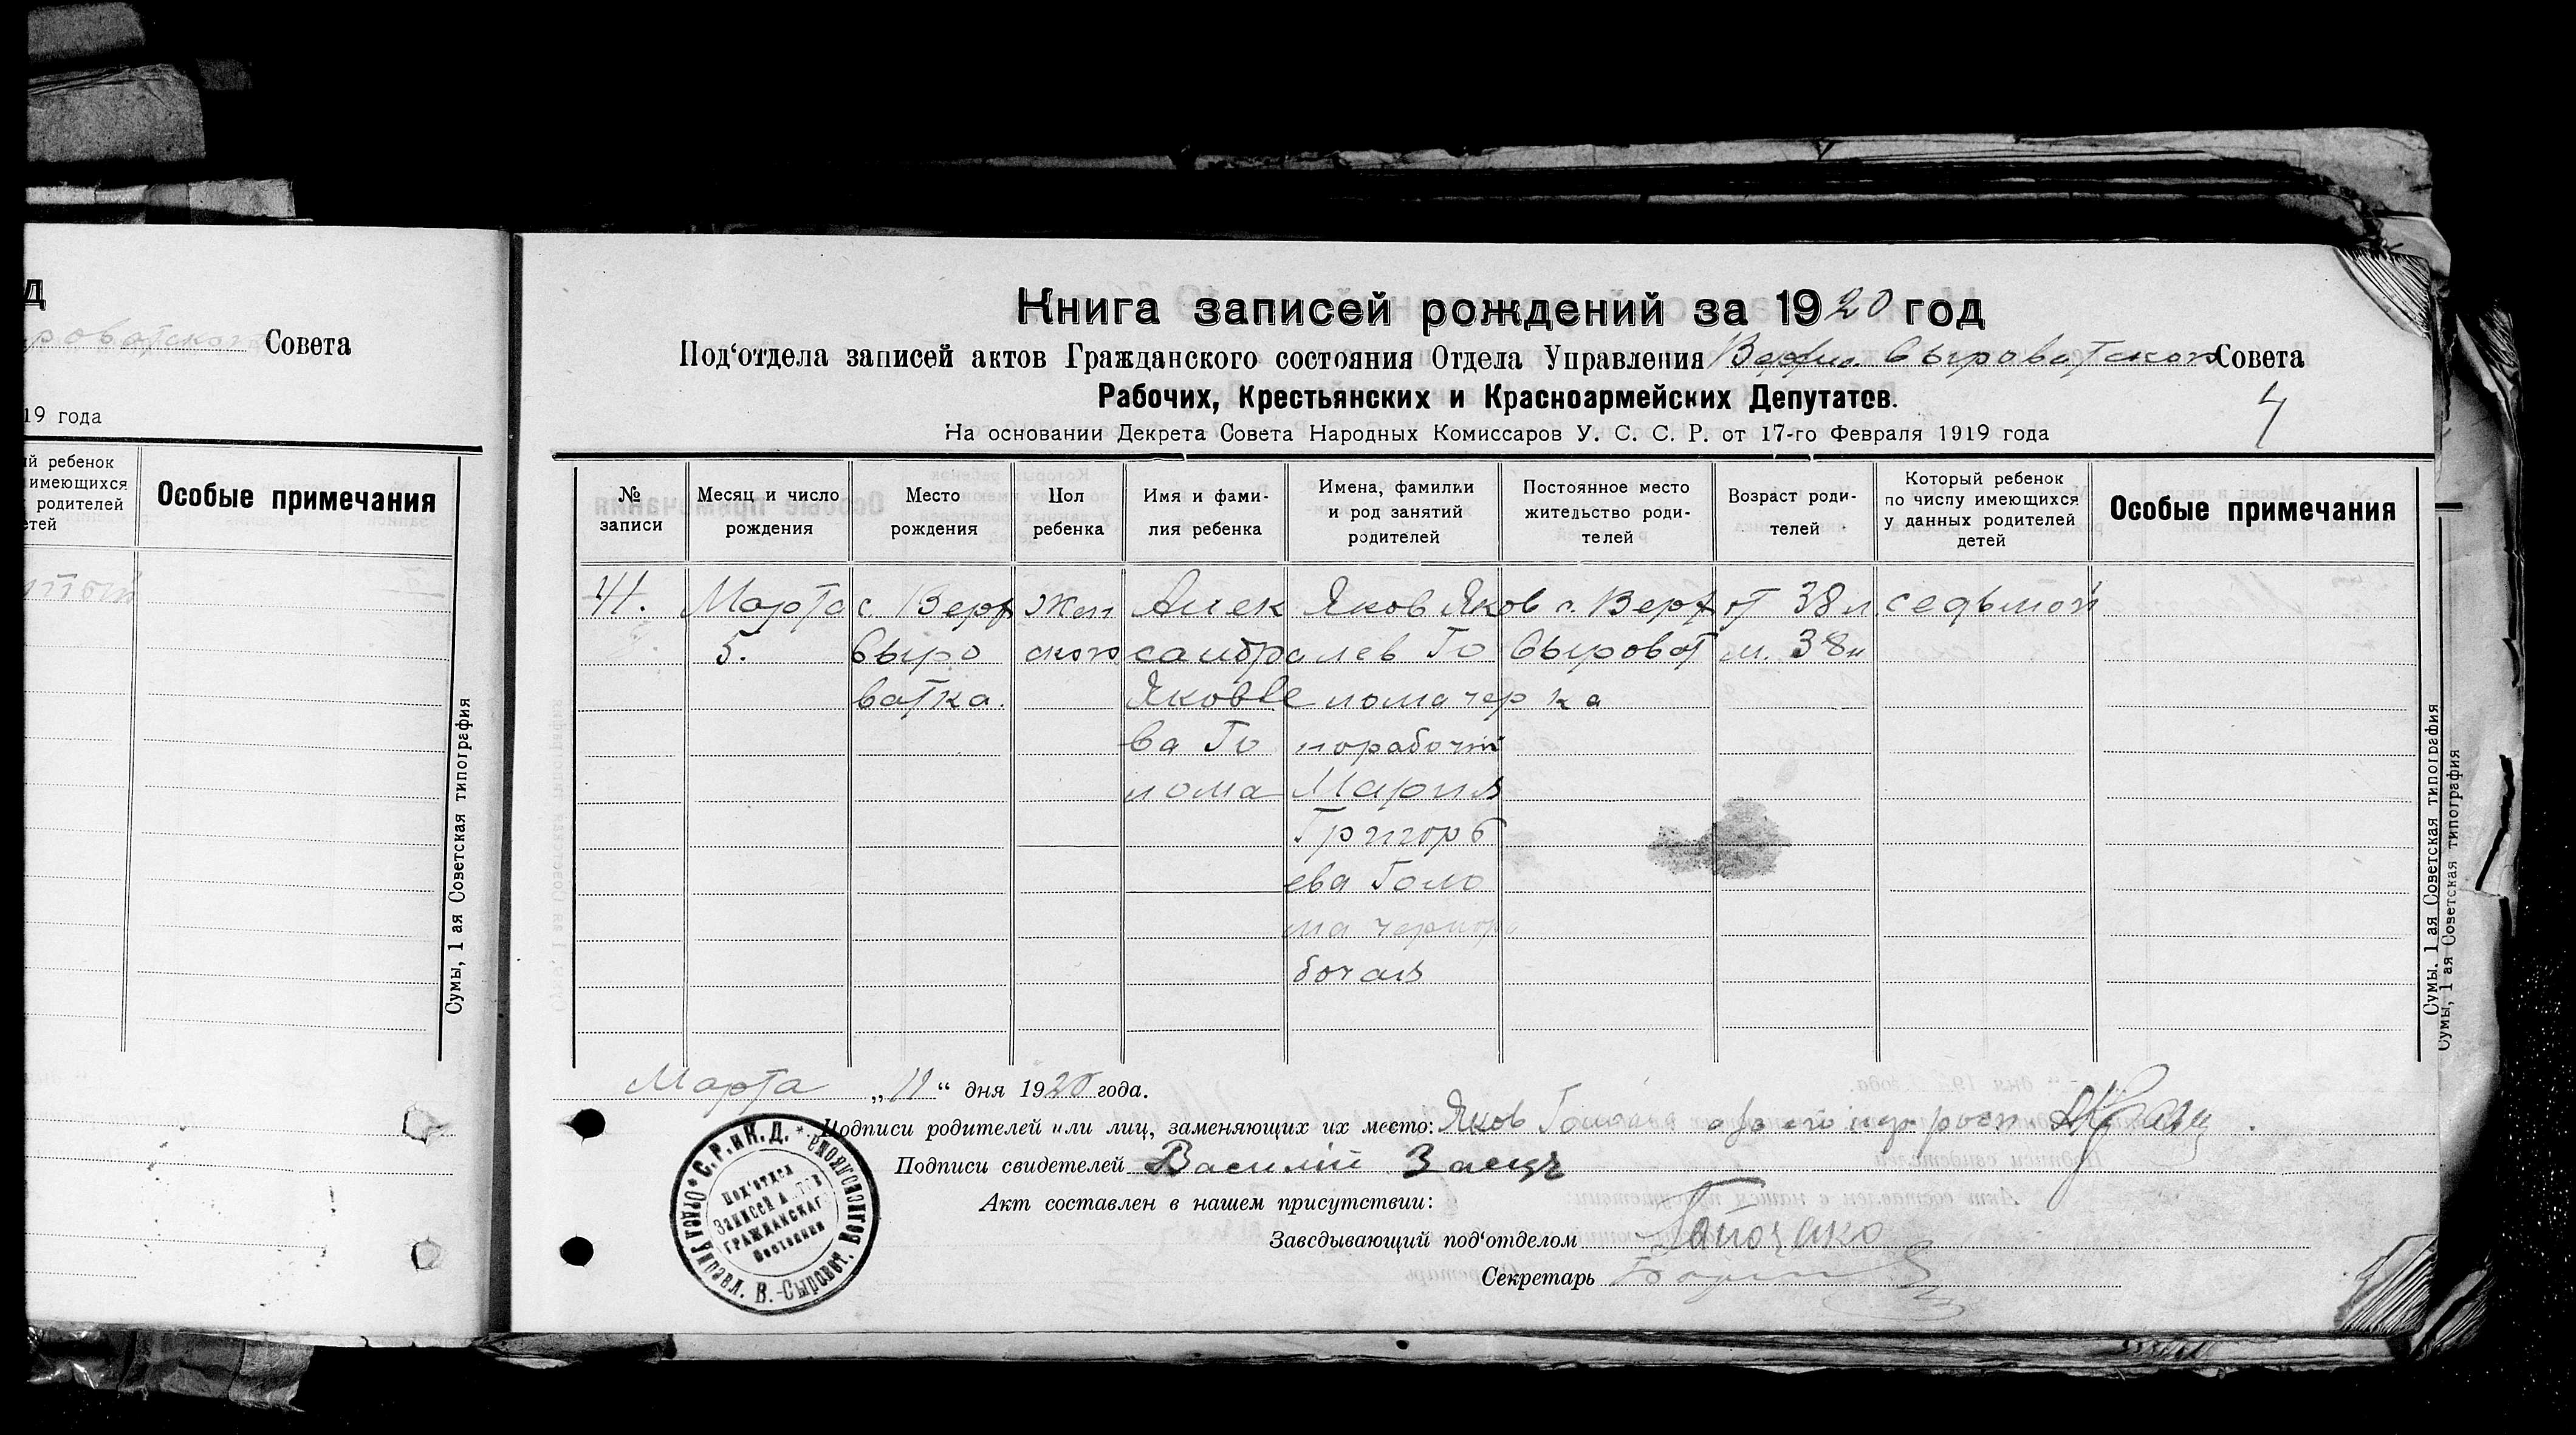 д
Совета
19 года
й ребенок
имеющихся
родителей
етей
Особые примечания
Сумы, 1 ая Советская типография
Книга записей рождений за 1920 год
Под‘отдела записей актов Гражданского состояния Отдела Управления Верхн. Сыроватского Совета
Рабочих, Крестьянских и Красноармейских Депутатов.
4
На основании Декрета Совета Народных Комиссаров У. С. С. Р. от 17-го Февраля 1919 года
№ записи
Месяц и число рождения
Место рождения
Пол ребенка
Имя и фами-
лия ребенка
Имена, фамилии
и род занятий
родителей
Постоянное место
жительство роди-
телей
Возраст роди-
телей
Который ребенок
по числу имеющихся
у данных родителей
детей
Особые примечания
Марта с. Верх жен Алек Яков Яков с. Верх от 38 л седьмой
5. Сыро ского сандра лев Го Сыроват м. 38 л
ватка. Яковле лома чер ка
ва Го норабочий
лома Мария
Григорь
ева Голо
ма чернора
бочая
Сумы, 1 ая Советская типография
Сумы, 1 ая Советская типография
Марта „11“ дня 1920 года.
Подписи родителей или лиц, заменяющих их место: Яков Голома
Подписи свидетелей Василий Заец
Акт составлен в нашем присутствии:
Заведывающий под‘отделом
Секретарь
С.Р. и К.Д.
Под‘отдел
Записей Актов
Гражданскаг
Состояния
Отдела Управл. В.-Сыроват.